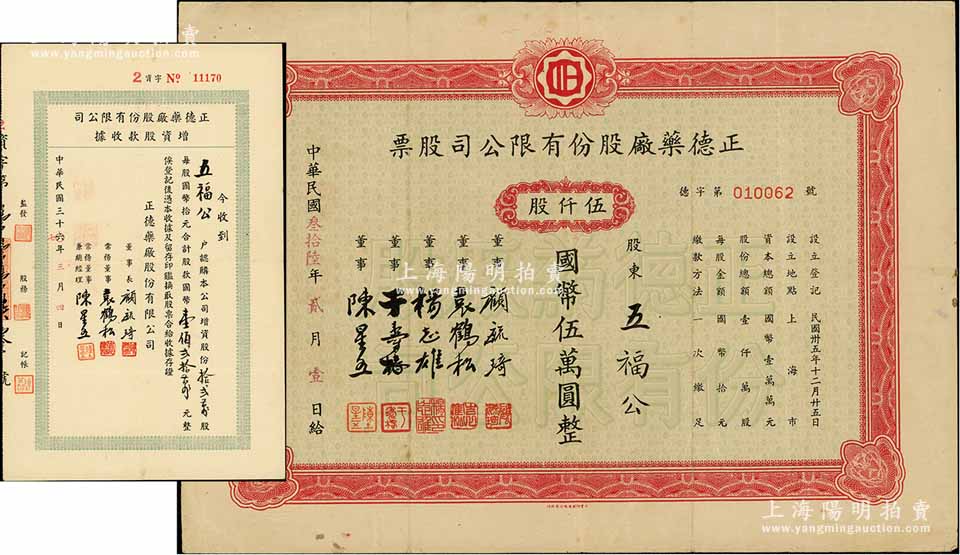 上海陽明拍賣
www.yangmingauction.com
2 字資 № 11170
司公限有份股廠藥德正
據收款股資增
今收到
五福公 户認購本公司增資股份拾弍萬股
每股國幣拾元合計股款國幣壹佰弍拾萬元整
俟登記後憑本收據及留存印鑑換取股票合給收據存證
正德藥廠股份有限公司
董事長 顧毓琦
常務董事 袁鶴松
常務董事兼總經理 陳星五
中華民國三十六年三月四日
監發
股務
記帳
票股司公限有份股廠藥德正
德字第 010062 號
股仟伍
設立登記 民國卅五年十二月廿五日
設立地點 上海市
資本總額 國幣壹萬萬元
股份總額 壹仟萬股
每股金額 國幣拾元
繳款方法 一次繳足
股東 五福公
國幣伍萬圓整
董事 顧毓琦
董事 袁鶴松
董事 楊志雄
董事
董事 陳星五
中華民國叁拾陸年貳月壹日給
上海陽明拍賣
www.yangmingauction.com
上海陽明拍賣
www.yangmingauction.com